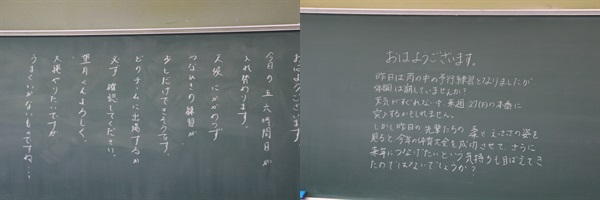 おはようございます。
今日の五、六時間目が
入れ替わります。
天候にかかわらず
つなひきの練習が
少しだけできそうです。
どのチームに出場するか
必ず確認してください。
望月くんよろしく。
やりたいですが
うまくいかないものですね…。
おはようございます。
昨日は雨の中の予行練習となりましたが
体調は崩していませんか?
天気がすぐれないず、来週27(月)の本番に
突入するかもしれません。
しかし昨日の先輩たちの の姿を
見ると、今年の体育大会を成功させて、さらに
来年につなげたいという気持ちも目ばえてき
たのではないでしょうか?